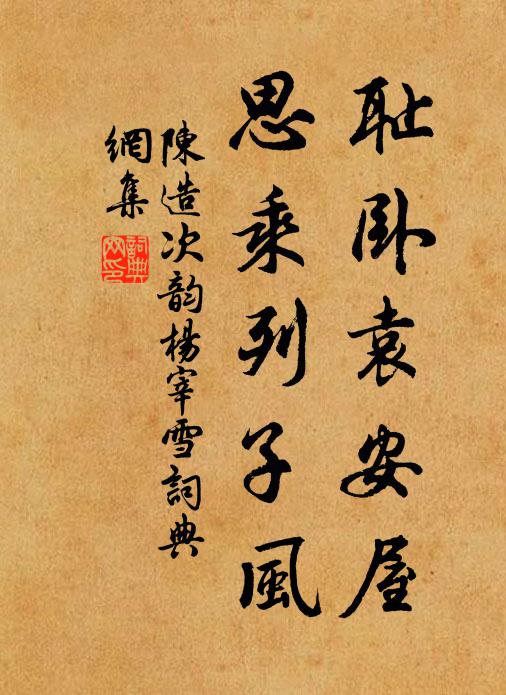 耻卧袁安屋
思乘列子風
陳造次韵楊宰雪詞典
網集
詞典網印